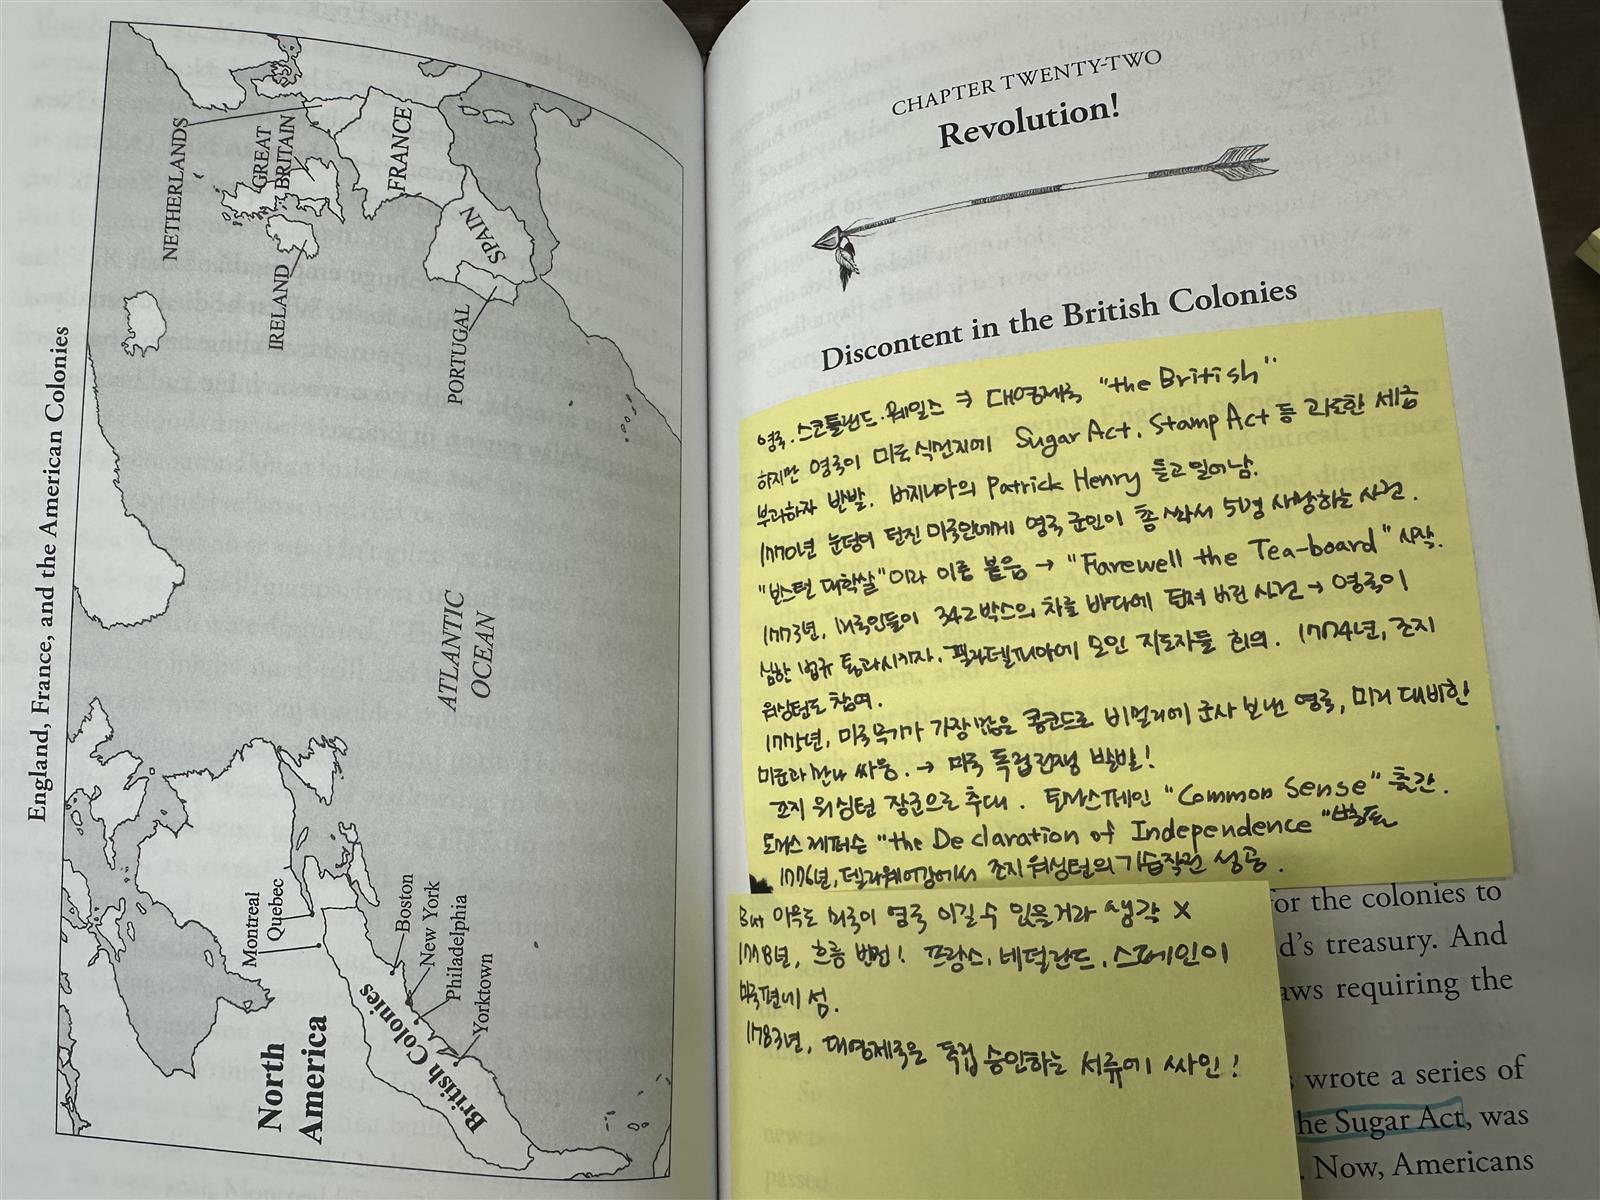 England, France, and the American Colonies
NETHERLANDS
GREAT
BRITAIN
IRELAND
FRANCE
SPAIN
PORTUGAL
ATLANTIC
OCEAN
Montreal
Quebec
Boston
New York
Philadelphia
Yorktown
British Colonies
North
America
CHAPTER TWENTY-TWO
Revolution!
Discontent in the British Colonies
영국. 스코틀랜드. 웨일스 ⇒ 대영제국 "the British"
하지만 영국이 미국 식민지에 Sugar Act, Stamp Act 등 과도한 세금
부과하자 반발. 버지니아의 Patrick Henry 들고 일어남.
1770년 눈덩이 던진 미국인에게 영국 군인이 총 쏴서 5명 사망하는 사건.
"보스턴 대학살"이라 이름 붙음 → "Farewell the Tea-board" 시작.
1773년, 미국인들이 342박스의 차를 바다에 던져 버린 사건 → 영국이
심한 법규 통과시키자, 필라델피아에 모인 지도자들 회의. 1774년, 조지
워싱턴도 참여.
1775년, 미국 무기가 가장 많은 콩코드로 비밀리에 군사 보낸 영국, 미리 대비한
미군과 만나 싸움. → 미국 독립전쟁 발발!
조지 워싱턴 장군으로 추대. 토마스페인 "Common Sense" 출간.
토마스 제퍼슨 "the Declaration of Independence" 발표
1776년, 델라웨어강에서 조지워싱턴의 기습작전 성공.
But 아무도 미국이 영국 이길 수 있을거라 생각 X
1778년, 흐름 반전! 프랑스, 네덜란드, 스페인이
미국편에 섬.
1783년, 대영제국은 독립 승인하는 서류에 싸인!
for the colonies to
d's treasury. And
aws requiring the
wrote a series of
he Sugar Act, was
. Now, Americans